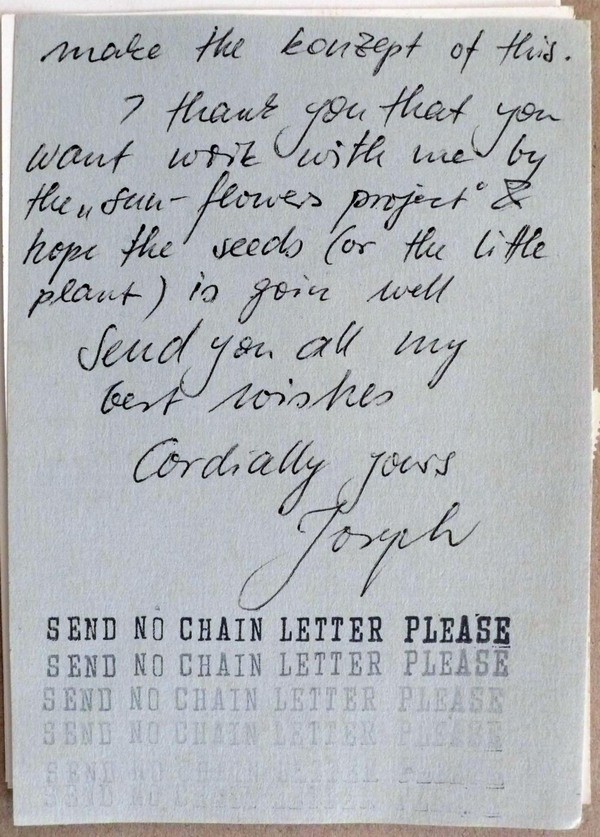 make the konzept of this.
I thank you that you
want work with me by
the „sun-flowers project“ &
hope the seeds (or the little
plant) is goin well
Send you all my
best wishes
Cordially yours
Joseph
SEND NO CHAIN LETTER PLEASE
SEND NO CHAIN LETTER PLEASE
SEND NO CHAIN LETTER PLEASE
SEND NO CHAIN LETTER PLEASE
SEND NO CHAIN LETTER PLEASE
SEND NO CHAIN LETTER PLEASE